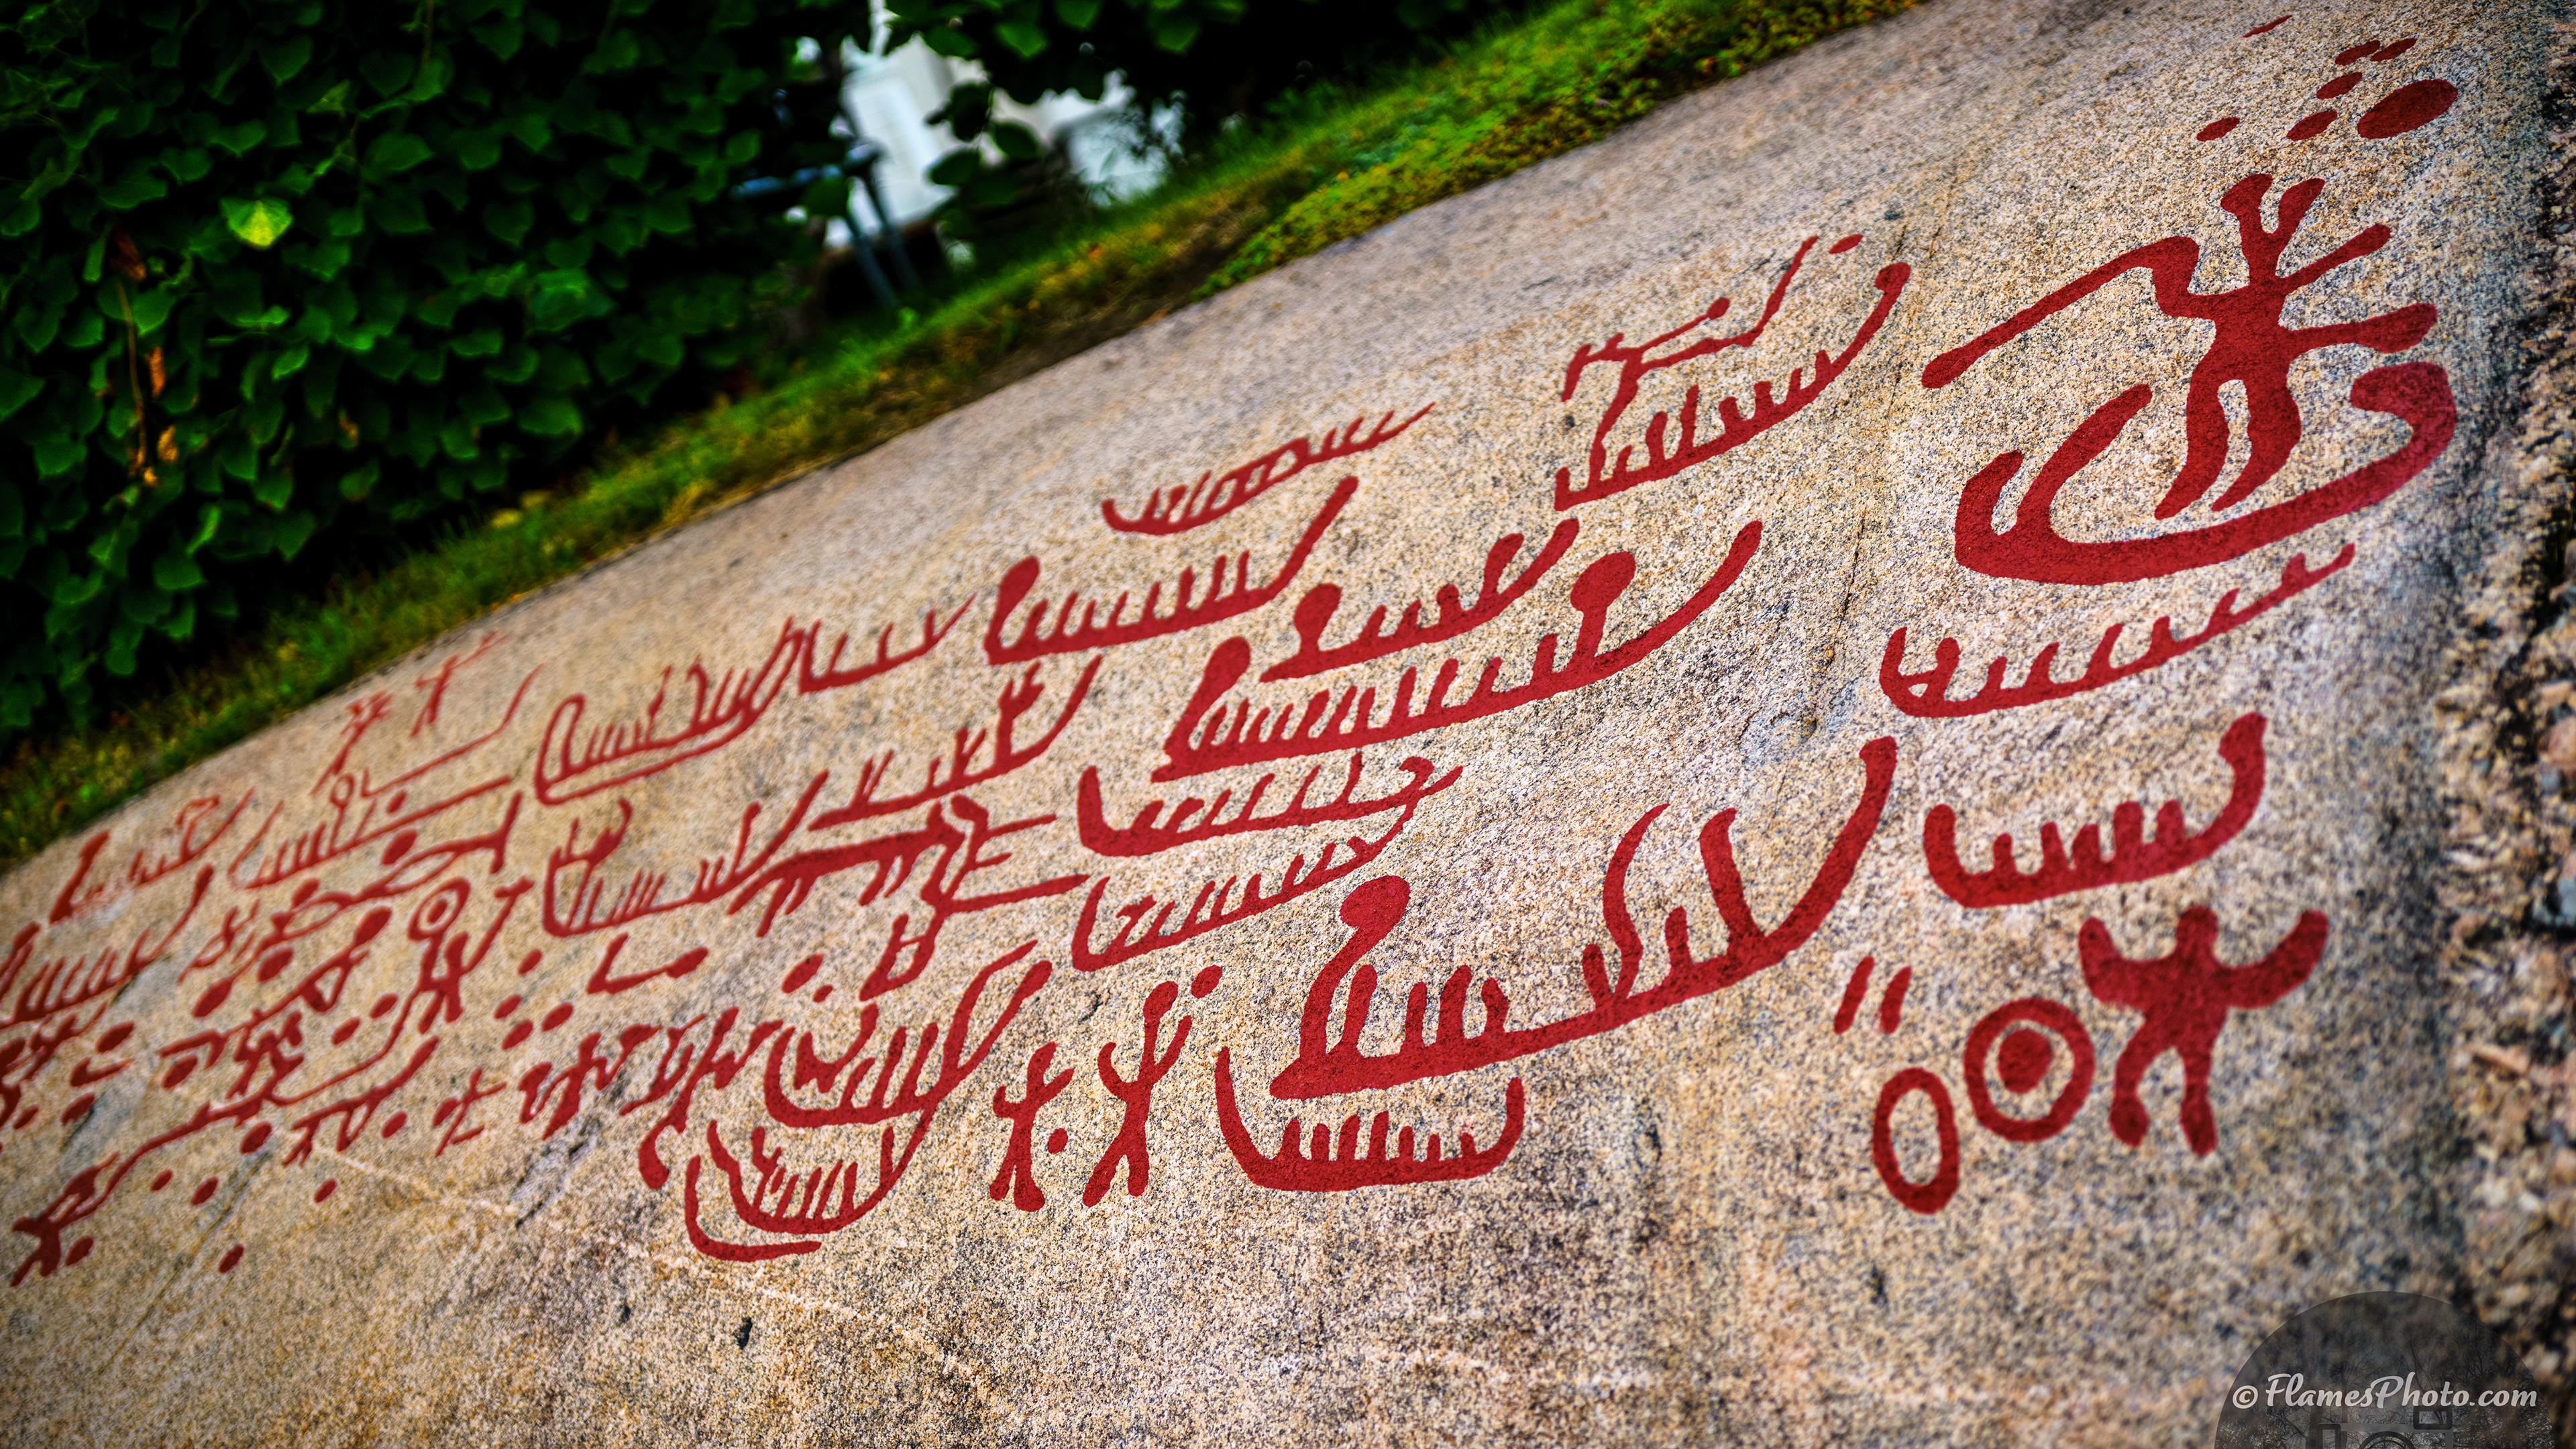 © FlamesPhoto.com